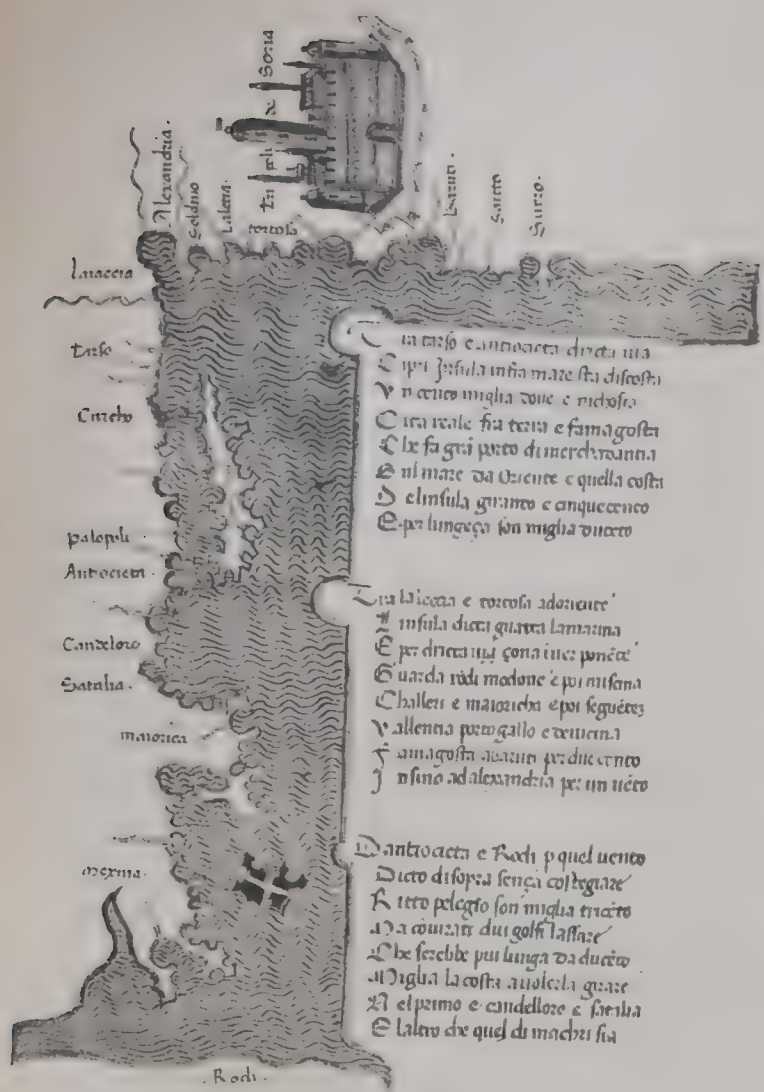 Soria
de
Tripoli
Alexandria.
Soldino
Tortosa
Baruti.
Saieto
Surro.
Laiaccia
Tarso
Curcho
palopoli
Antiocieta.
Candeloro
Satalia.
maiorica
Rodi.
Tra tarso e antiocieta diricta via
Cipri Insula infra mare sta discosta
Vn cento miglia doue e nichosia
Cita reale fra terra e famagosta
Che fa gran porto di merchadantia
E nl mare da Oriente e quella costa
Delinsula girando e cinquecento
E per lungeça son miglia
Tra e tortosa adoriente
Linsula dicta guarda lamarina
E per dricta çona
Guarda rodi modone e poi misina
e maioricha e poi
Vallentia portogallo e
Famagosta abaruti per due cento
Insino ad alexandria per un uéto
Dantiocieta e Rodi p quel uento
Dicto disopra sença costegiare
Ritto pelegio son miglia tricéto
Ma dui golfi lassare
Che serebbe piu lunga da ducéto
Miglia la costa a uolerla girare
Nel primo e candelloro e satalia
E laltro che quel di machri sia